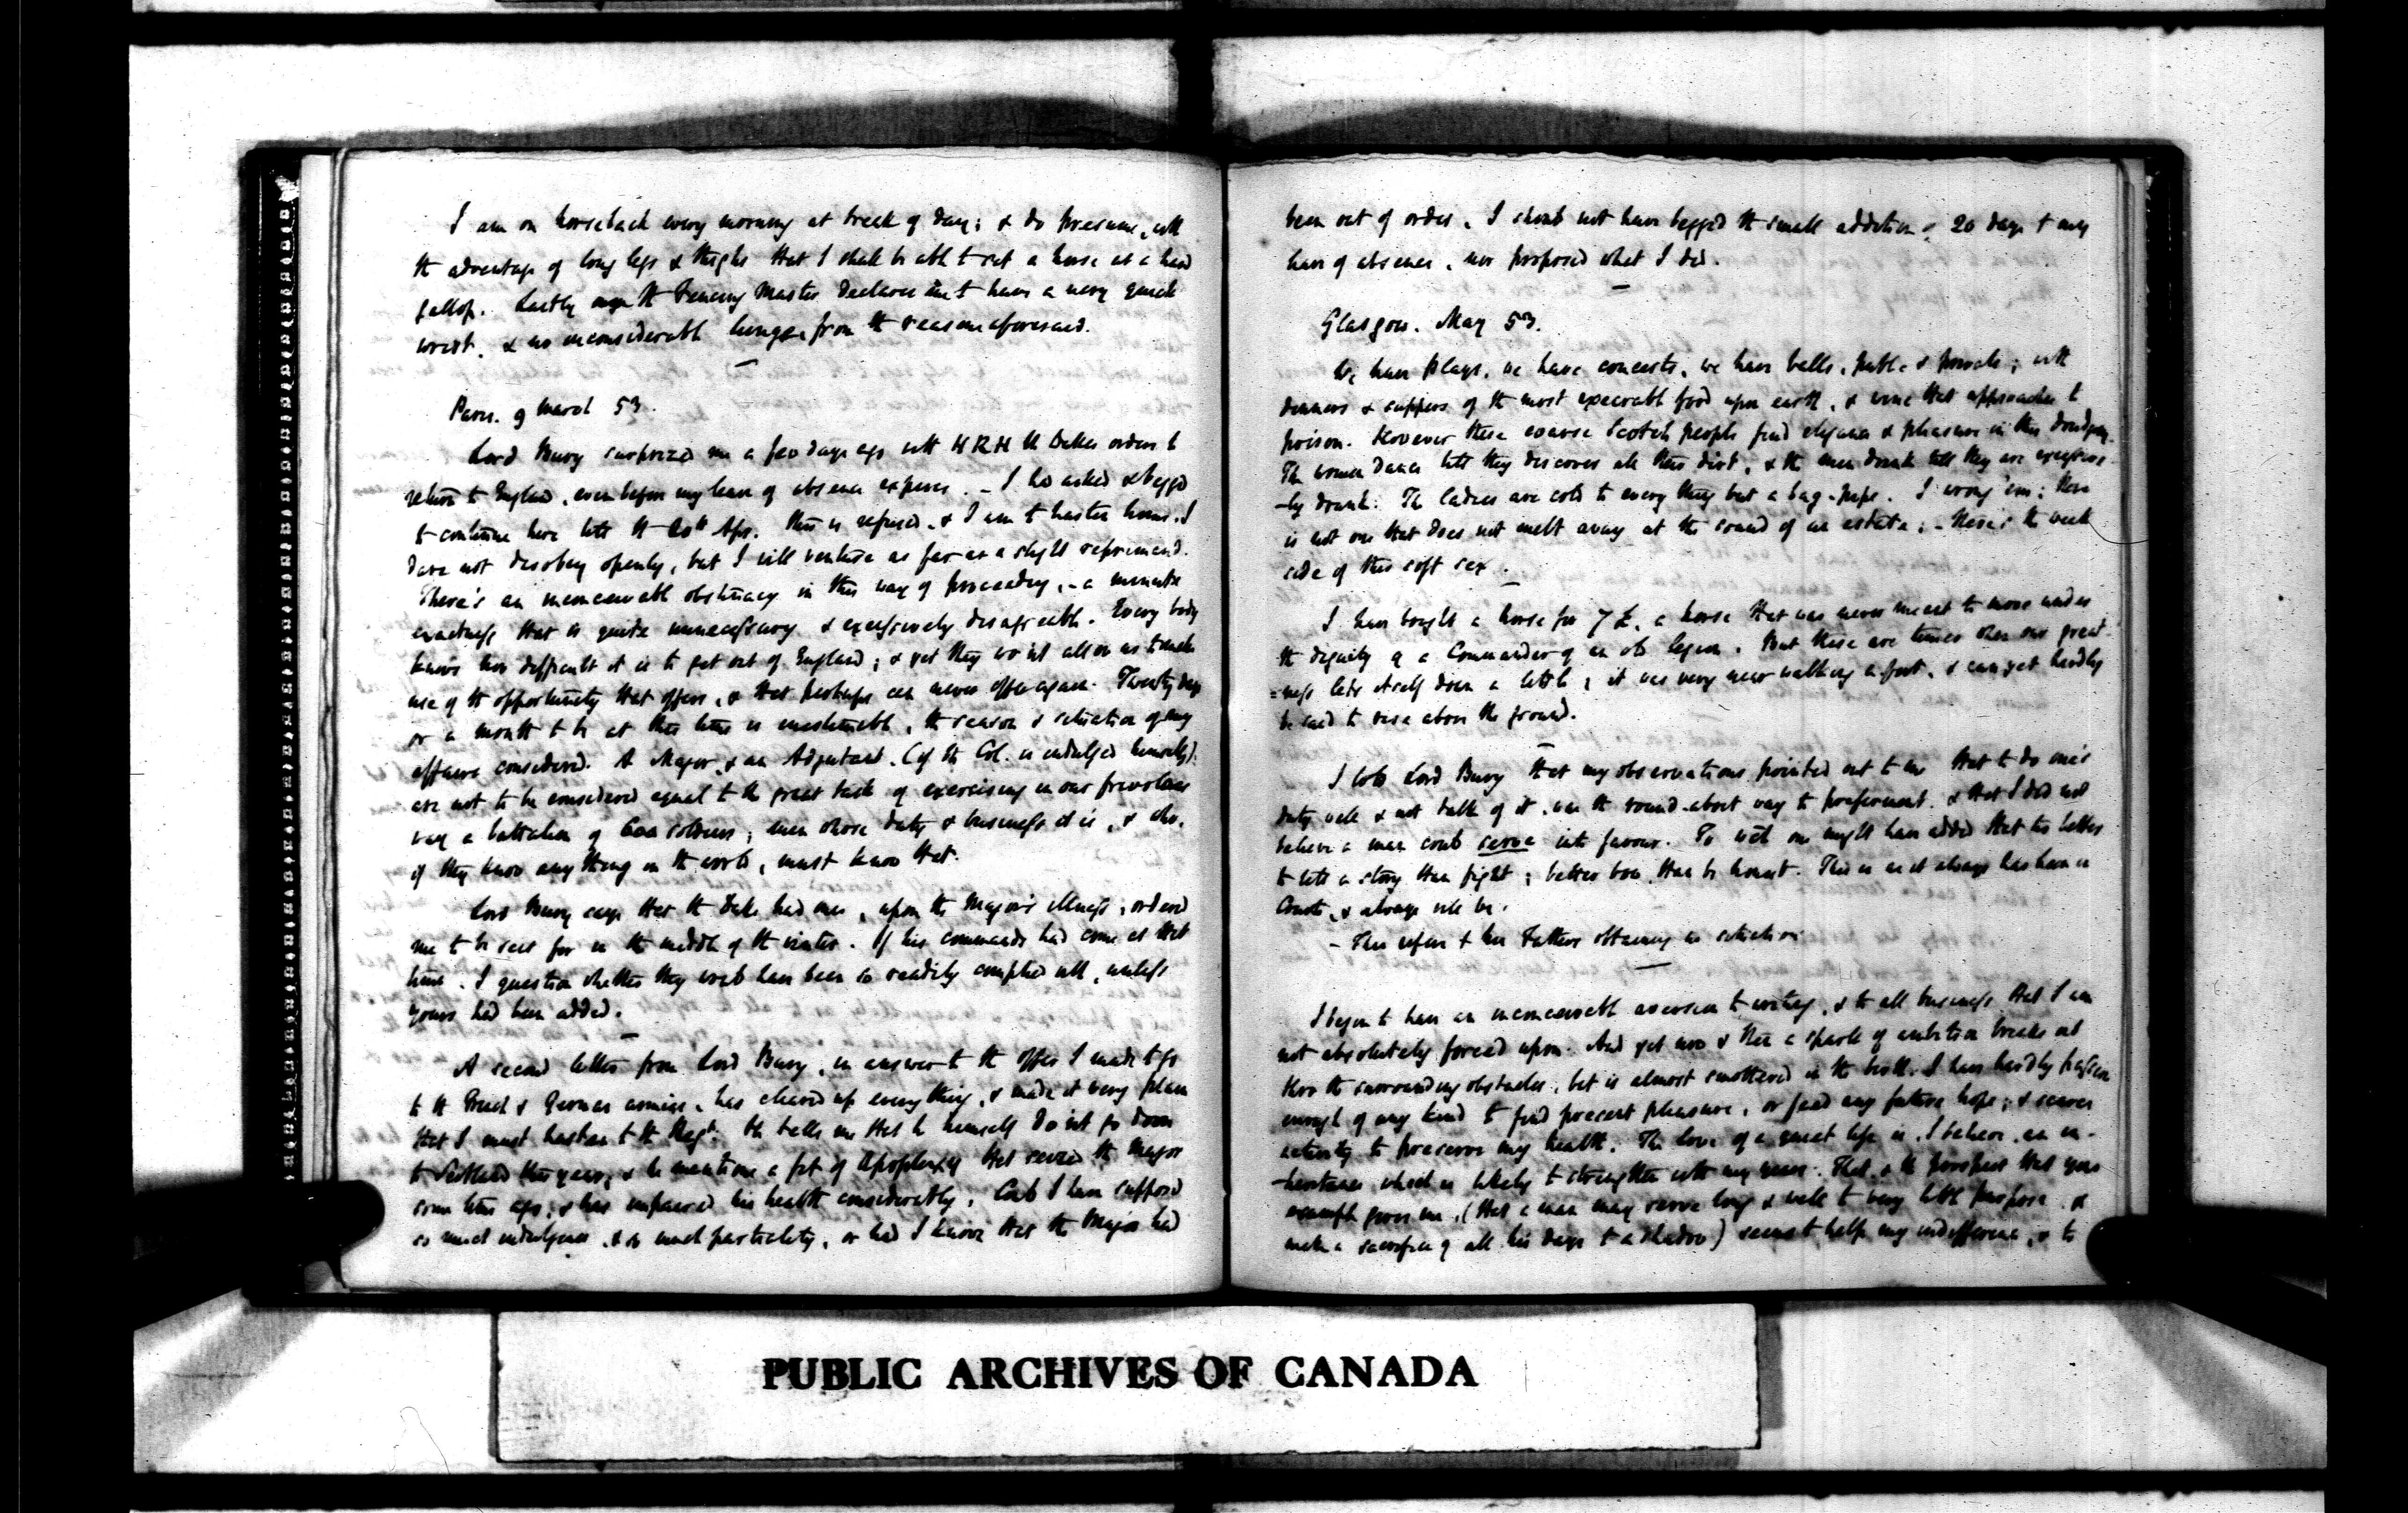 I am on horseback every morning at break of day; & do presume, with
the advantage of long legs & thighs that I shall be able to sit a horse at a hand
gallop. Lastly the Fencing Master declares me to have a very quick
wrist, & no inconsiderable lunge, from the reason aforesaid.
Paris. 9 March 53.
Lord Bury surprized me a few days ago with HRH the Dukes orders to
return to England, even before my leave of absence expires. - I had asked & begged
to continue here till the Apr. this is refused, & I am to hasten home. I
dare not disobey openly, but I will venture as far as a slight reprimand.
There's an inconceivable obstinacy in this way of proceeding, - a minute
exactness that is quite unnecessary & excessively disagreeable. Every body
knows how difficult it is to get out of England; & yet they wo'nt allow us to make
use of the opportunity that offers, & that perhaps can never offer again. Twenty days
or a month to be at this time is inestimable, the season & situation of my
affairs considered. A Major, & an Adjutant, (if the Col. is indulged himself)
are not to be considered equal to the great task of exercising in our frivolous
way a battalion of soldiers; men whose duty & business it is, & who,
if they know any thing in the world, must know that.
Lord Bury says that the Duke had once, upon the Major's illness, ordered
me to be sent for in the middle of the winter. If his commands had come at that
time, I question whether they would have been so readily complied with, unless
yours had been added.
A second letter from Lord Bury, in answer to the offer I made to go
to the French & German armies, has cleared up every thing, & made it very plain
that I must hasten to the Regt. He tells me that he himself do'nt go down
to Scotland this year, & he mentions a fit of Apoplexy that seized the Major
some time ago, & has impaired his health considerably. Could I have supposed
so much indulgence & so much partiality, or had I known that the Major had
been out of order, I should not have begged the small addition of 20 days to my
leave of absence, nor proposed what I did.
Glasgow. May 53.
We have plays, we have concerts, we have balls, public & private; with
dinners & suppers of the most execrable food upon earth, & wine that approaches to
poison. However these coarse Scotch people find elegance & pleasure in this
The women dance till they discover all their dirt, & the men drink till they are excessive
-ly drunk. The ladies are cold to every thing but a bag-pipe. I wrong 'em; there
is not one that does not melt away at the sound of an estate; - there's the weak
side of this soft sex.
I have bought a horse for 7 £, a horse that was never meant to move under
the dignity of a Commander of an old legion. But these are times when our great
=ness lets itself down a little; it was very near walking a foot, & can yet hardly
be said to rise above the ground.
I told Lord Bury that my observations pointed out to me that to do one's
duty well & not talk of it, was the round-about way to preferment, & that I did not
believe a man could serve into favour. To wch one might have added that 'tis better
to tell a story than fight; better bow than be honest. This is as it always has been in
Courts, & always will be.
- This refers to his Fathers obtaining a situation
I begin to have an inconceivable aversion to writing, & to all business that I am
not absolutely forced upon. And yet now & then a spark of ambition breaks out
thro the surrounding obstacles, but is almost smothered in the birth. I have hardly passion
enough of any kind to find present pleasure, or feed any future hope; & scarce
activity to preserve my health. The love of a quiet life is, I believe, an in-
-heritance which is likely to strengthen with my years. That, & the prospect that your
example gives me, (that a man may serve long & well to very little purpose, &
make a sacrifice of all his days to a shadow) seems to help my indifference, & to
PUBLIC ARCHIVES OF CANADA